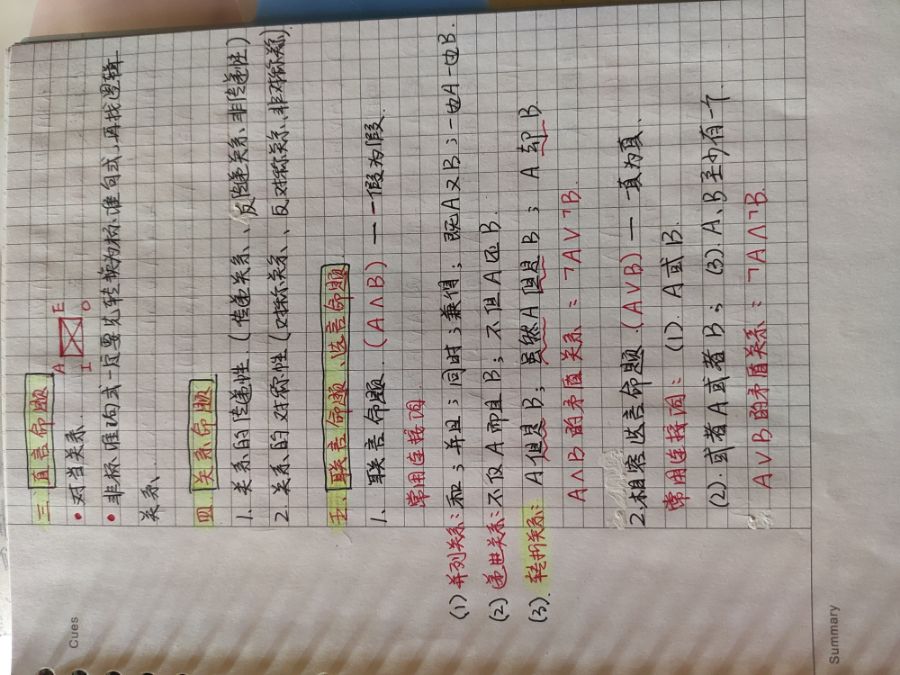 Cues
三. 直言命题
• 对当关系.
A E
I O
• 非标准句式一定要先转换为标准句式, 再找逻辑
关系.
四. 关系命题
1. 关系的传递性 (传递关系、反传递关系、非传递性)
2. 关系的对称性 (对称关系、反对称关系、非对称关系)
五. 联言命题、选言命题
1. 联言命题. (A∧B) — 一假为假.
常用连接词
(1) 并列关系: 和; 并且; 同时; 兼得; 既A又B; 一边A一边B.
(2) 递进关系: 不仅A而且B; 不但A还B.
(3). 转折关系: A但是B; 虽然A但是B; A却B.
A∧B的矛盾关系: ¬A∨¬B.
2. 相容选言命题. (A∨B) — 一真为真.
常用连接词: (1). A或B.
(2). 或者A或者B; (3). A、B至少有一个
A∨B的矛盾关系: ¬A∧¬B.
Summary